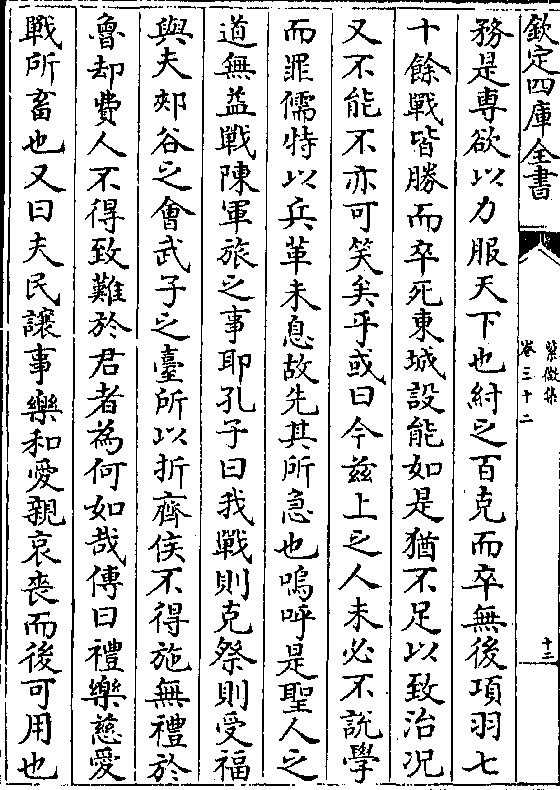 欽定四庫全書
紫微集
卷三十二
十三
務是専欲以力服天下也紂之百克而卒無後項羽七
十餘戰皆勝而卒死東城設能如是猶不足以致治況
又不能不亦可笑矣乎或曰今兹上之人未必不説學
而罪儒特以兵革未息故先其所急也嗚呼是聖人之
道無益戰陳軍旅之事耶孔子曰我戰則克祭則受福
與夫郟谷之會武子之臺所以折齊侯不得施無禮於
魯却費人不得致難於君者為何如哉傳曰禮樂慈愛
戰所畜也又曰夫民讓事樂和愛親哀喪而後可用也